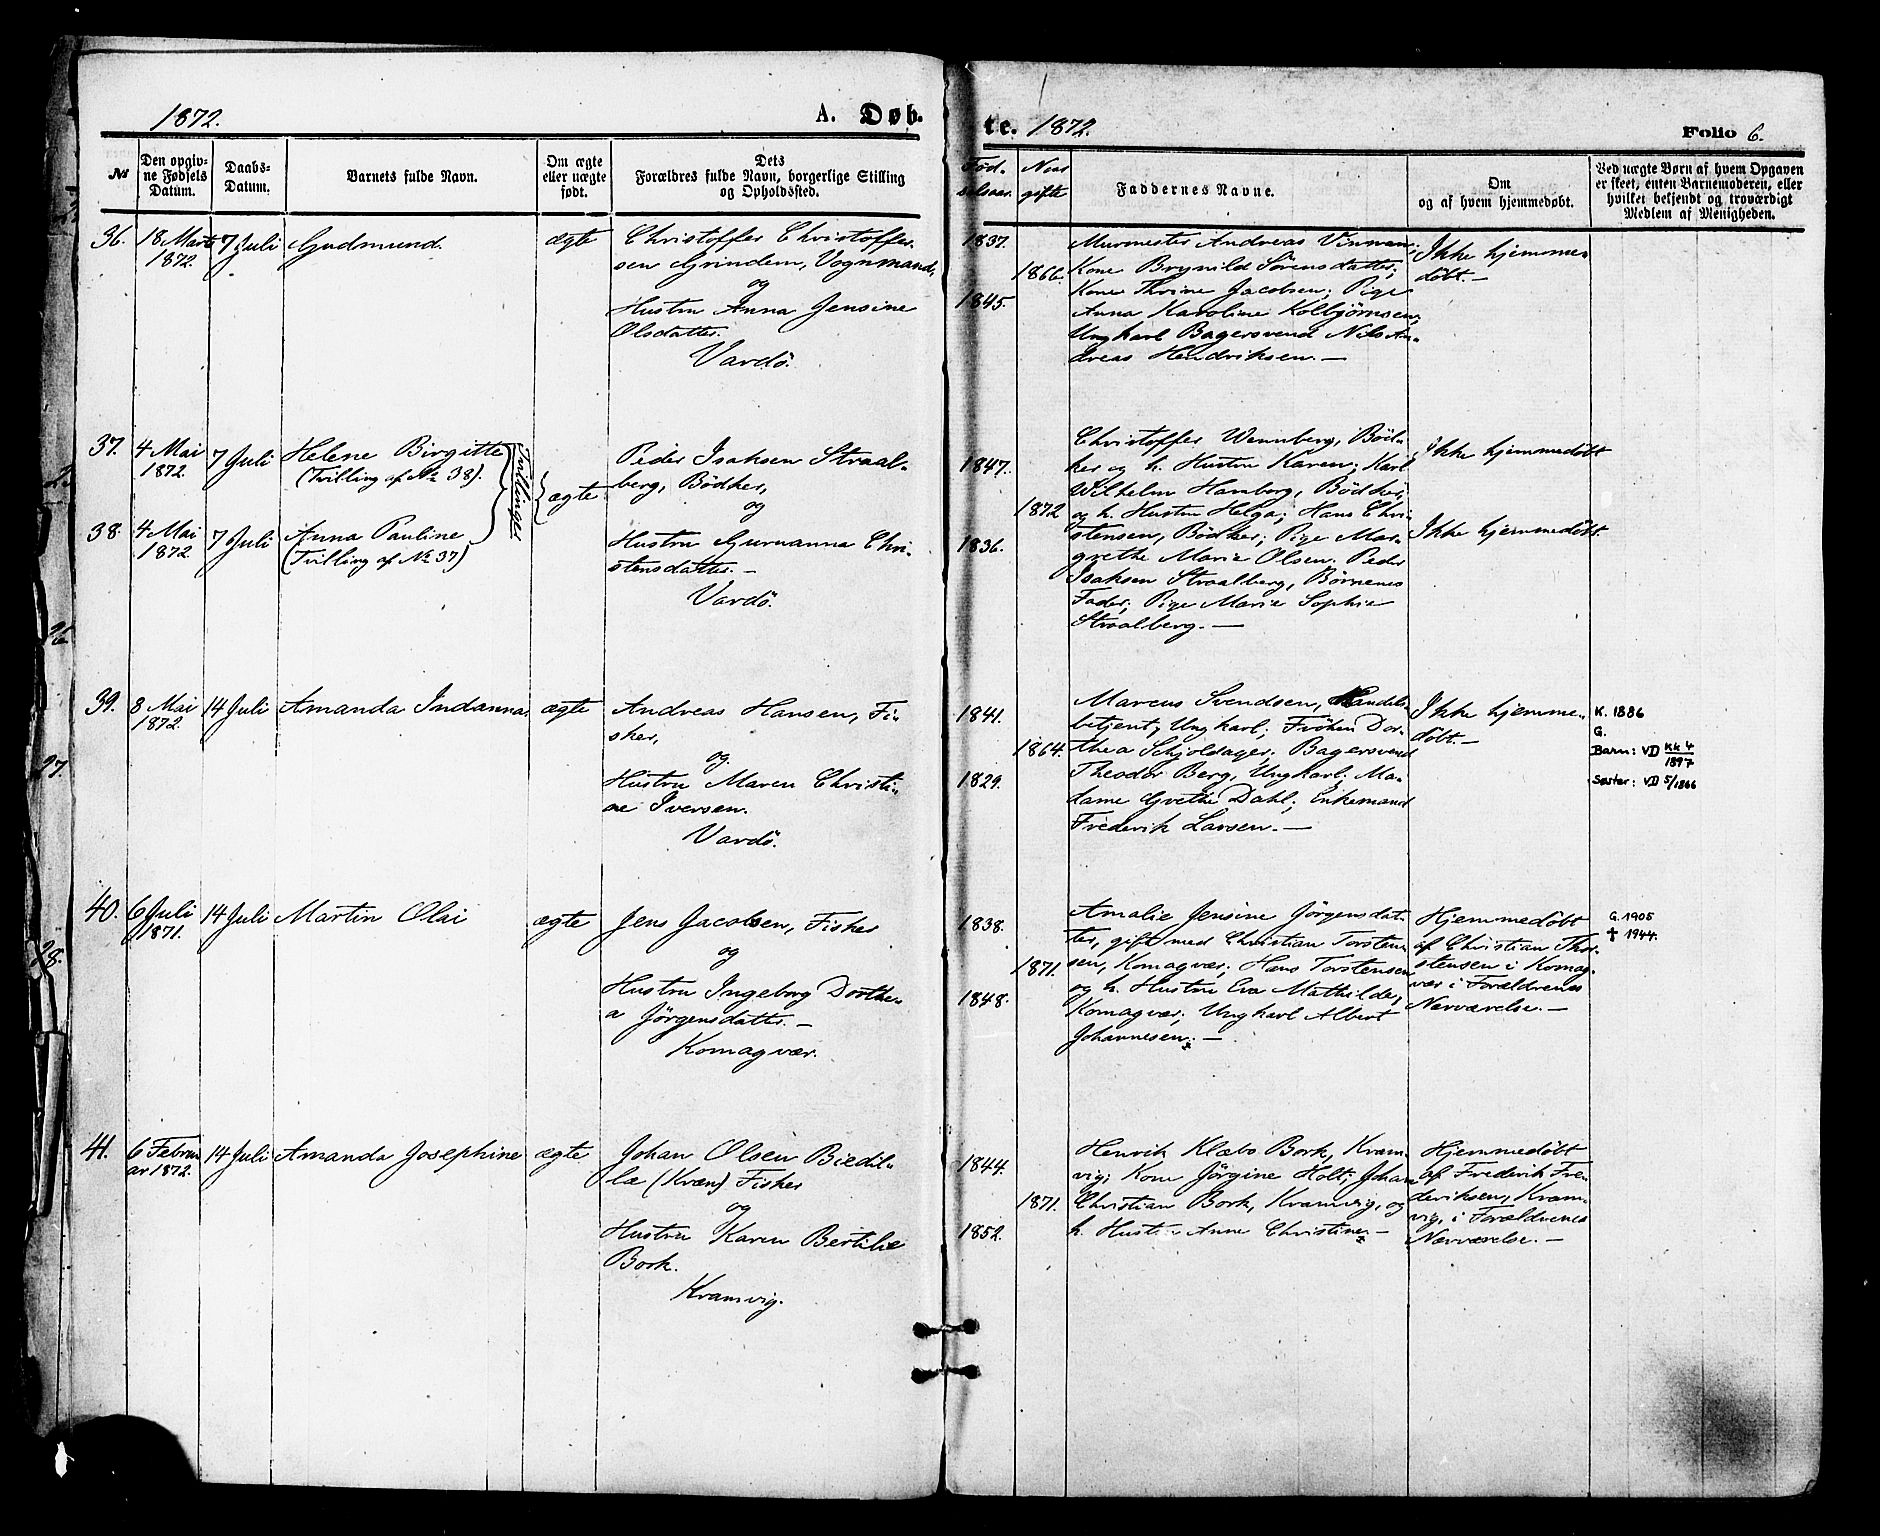 1872.
A. Døb.
te. 1872.
Folio 6.
No
Den opgiv-
ne Fødsels
Datum.
Daabs-
Datum.
Barnets fulde Navn.
Om ægte
eller uægte
født.
Dets
Forældres fulde Navn, borgerlige Stilling
og Opholdssted.
Fød-
selsaar.
Naar
gifte
Faddernes Navne.
Om
og af hvem hjemmedøbt.
Ved uægte Børn af hvem Opgaven
er skeet, enten Barnemoderen, eller
hvilket bekjendt og troværdigt
Medlem af Menigheden.
36.
18 Marts
1872.
7 Juli
Gudmund.
ægte
Christoffer Christoffer-
sen Grindem, Vognmand,
og
Hustru Anna Jensine
Olsdatter.
Vardö.
1837.
1866.
1845.
Murmester Andreas Vinnan;
Kone Brynild Sörensdatter;
Kone Thrine Jacobsen; Pige
Anna Karoline Kolbjörnsen;
Ungkarl Bagersvend Nils An-
dreas Hendriksen. —
Ikke hjemme-
döbt. —
37.
4 Mai
1872.
7 Juli
Helene Birgitte
(Tvilling af No 38).
Tvillinger
38.
4 Mai
1872.
7 Juli
Anna Pauline
(Tvilling af No 37)
ægte
Peder Isaksen Straal-
berg, Bödker,
og
Hustru Guruanna Chri-
stensdatter. —
Vardö.
1847.
1872
1836.
Christoffer Wennberg, Böd-
ker og h. Hustru Karen; Karl
Wilhelm Hamborg, Bödker,
og h. Hustru Helga; Hans Chri-
stensen, Bödker; Pige Mar-
grethe Marie Olsen. Peder
Isaksen Straalberg, Börnenes
Fader; Pige Marie Sophie
Straalberg. —
Ikke hjemmedöbt
Ikke hjemmedöbt.
39.
8 Mai
1872.
14 Juli
Amanda Indanna.
ægte
Andreas Hansen, Fi-
sker,
og
Hustru Maren Christi-
ne Iversen.
Vardö.
1841.
1864.
1829.
Marcus Svendsen, Handels-
betjent, Ungkarl; Fröken Dor-
thea Schjoldager; Bagersvend
Theodor Berg, Ungkarl; Ma-
dame Grethe Dahl; Enkemand
Frederik Larsen. —
Ikke hjemme-
döbt. —
K. 1886
G.
Barn: VD Kk 4
1897
Søster: VD 5/1866
40.
6 Juli
1871.
14 Juli
Martin Olai
ægte
Jens Jacobsen, Fisker
og
Hustru Ingeborg Dorthe-
a Jörgensdatter. —
Komagvær.
1838.
1871.
1848.
Amalie Jensine Jörgensdat-
ter, gift med Christian Torsten-
sen, Komagvær; Hans Torstensen
og h. Hustru Eva Mathilde,
Komagvær; Ungkarl Albert
Johannesen. —
Hjemmedöbt
af Christian Thor-
stensen i Komag-
vær i Forældrenes
Nærværelse. —
G. 1905
† 1944.
41.
6 Febru-
ar 1872.
14 Juli
Amanda Josephine
ægte
Johan Olsen Biedil-
la (Kvæn) Fisker
og
Hustru Karen Bertilie
Bork.
Kramvig.
1844.
1871.
1852.
Henrik Klæbo Bork, Kram-
vig; Kone Jörgine Holt; Johan
Christian Bork, Kramvig, og
h. Hustru Anne Christine. —
Hjemmedöbt
af Frederik Fre-
deriksen, Kram-
vig, i Forældrenes
Nærværelse. —
26
27.
28.